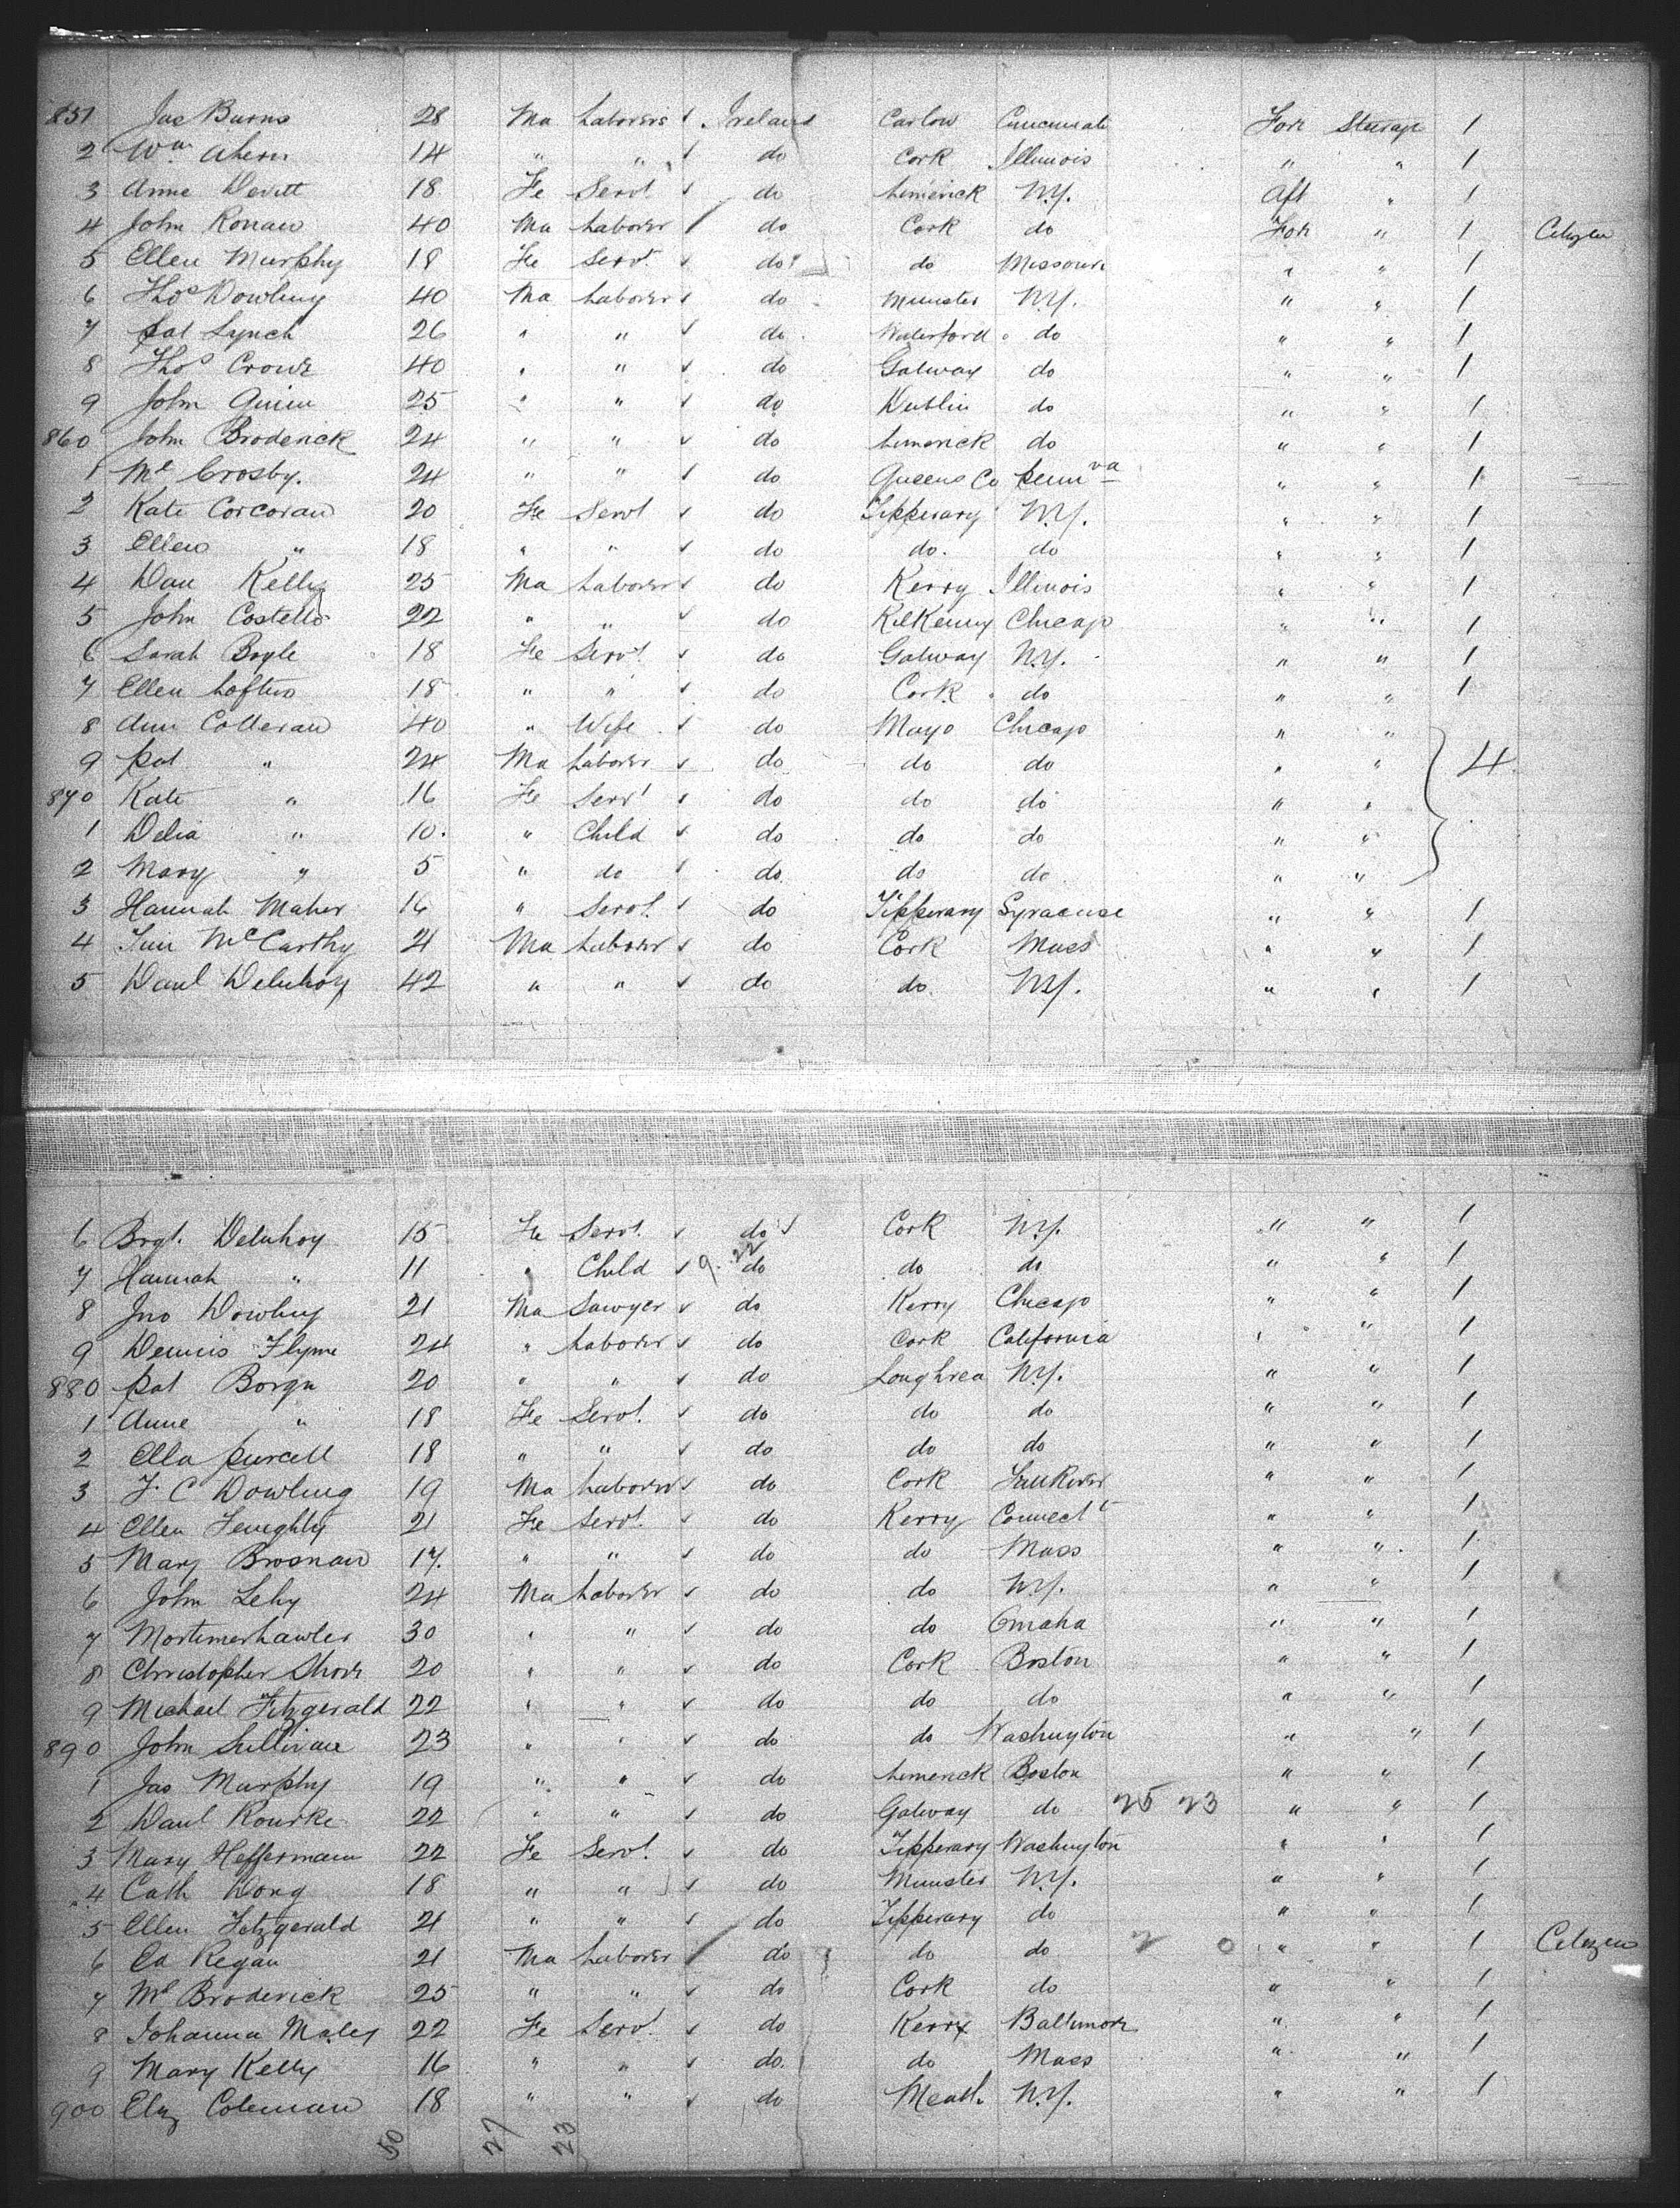 851 Jas Burns 28 Ma Laborer ✓ Ireland Carlow Cincinnati For Steerage 1
2 Wm Ahern 14 " " ✓ do Cork Illinois " " 1
3 Anne Devitt 18 Fe Servt ✓ do Limerick N.Y. Aft " 1
4 John Ronan 40 Ma Laborer / do Cork do For " 1 Citizen
5 Ellen Murphy 18 Fe Servt ✓ do do Missouri " " 1
6 Thos Dowling 40 Ma Laborer ✓ do Munster N.Y. " " 1
7 Pat Lynch 26 " " ✓ do Waterford do " " 1
8 Thos Crowe 40 " " ✓ do Galway do " " 1
9 John Quinn 25 " " ✓ do Dublin do " " 1
860 John Broderick 24 " " ✓ do Limerick do " " 1
1 Ml Crosby. 24 " " ✓ do Queens Co Pennva " " 1
2 Kate Corcoran 20 Fe Servt ✓ do Tipperary N.Y. " " 1
3 Ellen " 18 " " ✓ do do. do " " 1
4 Dan Kelly 25 Ma Laborer ✓ do Kerry Illinois " " 1
5 John Costello 22 " " ✓ do Kilkenny Chicago " " 1
6 Sarah Boyle 18 Fe Servt. ✓ do Galway N.Y. " " 1
7 Ellen Loftus 18 " " ✓ do Cork do " " 1
8 Ann Colleran 40 " Wife ✓ do Mayo Chicago " "
9 Pat " 24 Ma Laborer ✓ do do do " " 4
870 Kate " 16 Fe Servt ✓ do do do " "
1 Delia " 10. " Child ✓ do do do " "
2 Mary " 5 " do ✓ do do do " "
3 Hannah Maher 16 " Servt. ✓ do Tipperary Syracuse " " 1
4 Tim McCarthy 21 Ma Laborer ✓ do Cork Mass " " 1
5 Danl Deluhoy 42 " " ✓ do do. N.Y. " " 1
6 Brgt. Deluhoy 15 Fe Servt. ✓ do ✓ Cork N.Y. " " 1
7 Hannah " 11 " Child ✓ 9.22 do do do " " 1
8 Jno Dowling 21 Ma Sawyer ✓ do Kerry Chicago " " 1
9 Dennis Flynne 24 " Laborer ✓ do Cork California " " 1
880 Pat 20 " " ✓ do Loughrea N.Y. " " 1
1 Anne " 18 Fe Servt. ✓ do do do " " 1
2 Ella Purcell 18 " " ✓ do do do " " 1
3 J. C Dowling 19 Ma Laborer ✓ do Cork " " 1
4 Ellen 21 Fe Servt. ✓ do Kerry Connectt " " 1
5 Mary Brosnan 17. " " ✓ do do Mass " " 1
6 John Lehy 24 Ma Laborer ✓ do do N.Y. " " 1
7 Mortimer Lawler 30 " " ✓ do do Omaha " " 1
8 Christopher 20 " " ✓ do Cork Boston " " 1
9 Michael Fitzgerald 22 " " ✓ do do do " " 1
890 John Sullivan 23 " " ✓ do do Washington " " 1
1 Jas Murphy 19 " " ✓ do Limerick Boston " " 1
2 Danl Rourke 22 " " ✓ do Galway do 25 23 " " 1
3 Mary Heffernan 22 Fe Servt. ✓ do Tipperary Washington " " 1
4 Cath 18 " " ✓ do Munster N.Y. " " 1
5 Ellen Fitzgerald 21 " " ✓ do Tipperary do " " 1
6 Ed Regan 21 Ma Laborer / do do do 2 0 " " 1 Citizen
7 Ml Broderick 25 " " ✓ do Cork do " " 1
8 Johanna Maley 22 Fe Servt. ✓ do Kerry Baltimore " " 1
9 Mary Kelly 16 " " ✓ do. do Mass " " 1
900 Eliz Coleman 18 " " ✓ do Meath N.Y. " " 1
50 27 23